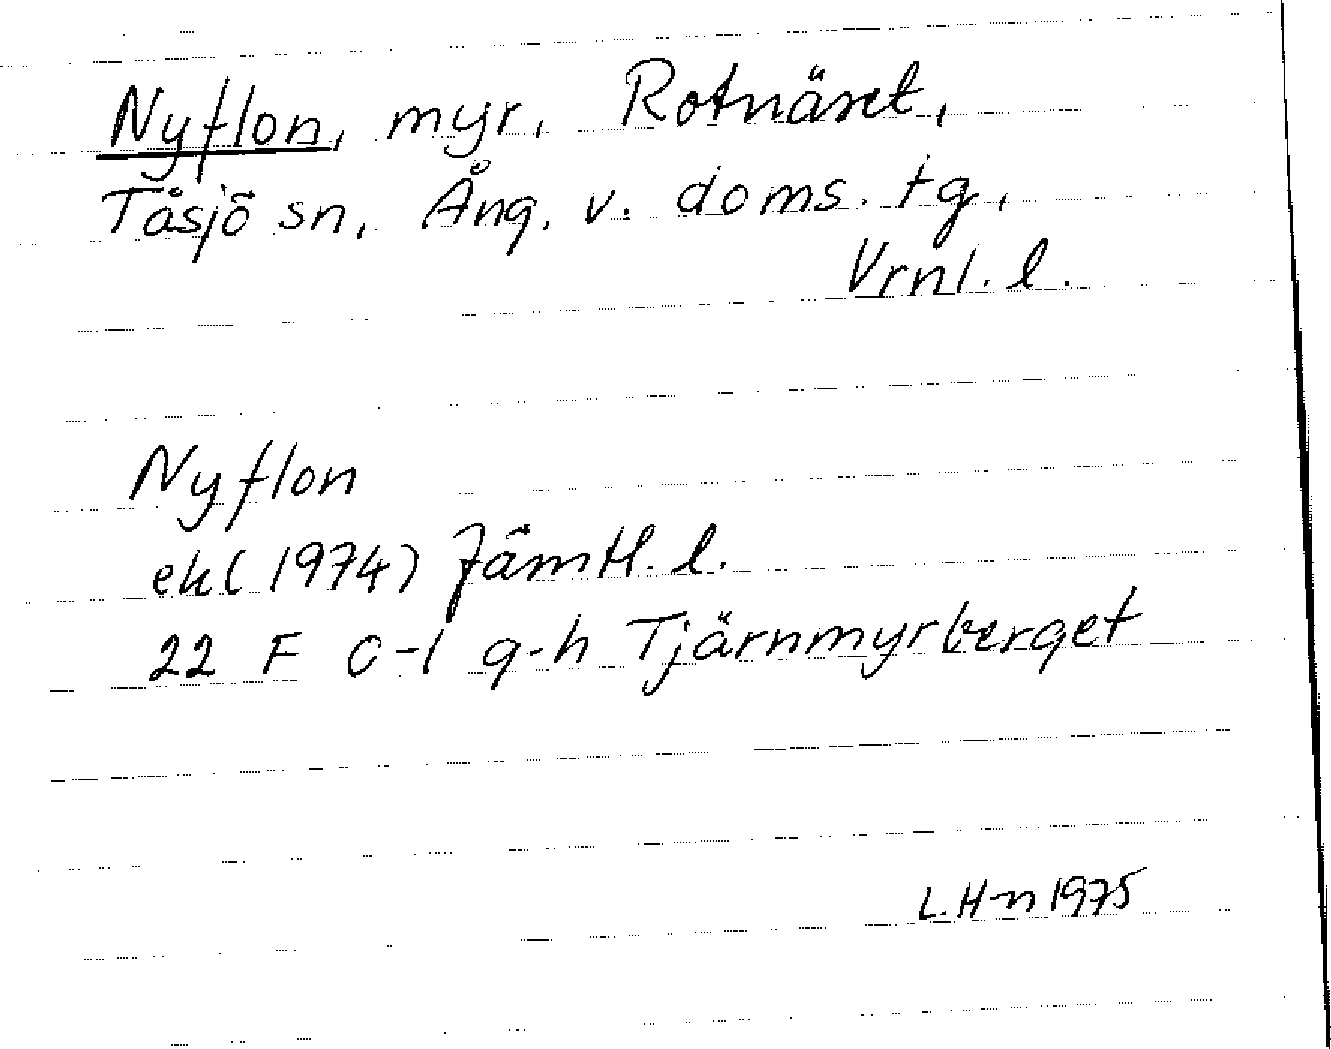 Nyflon, myr, Rotnäset,
Tåsjö sn, Ång. v. doms. tg,
Vrnl. l.
Nyflon
ek (1974) Jämtl. l.
22 F c-l g-h Tjärnmyrberget
L. H-n 1975